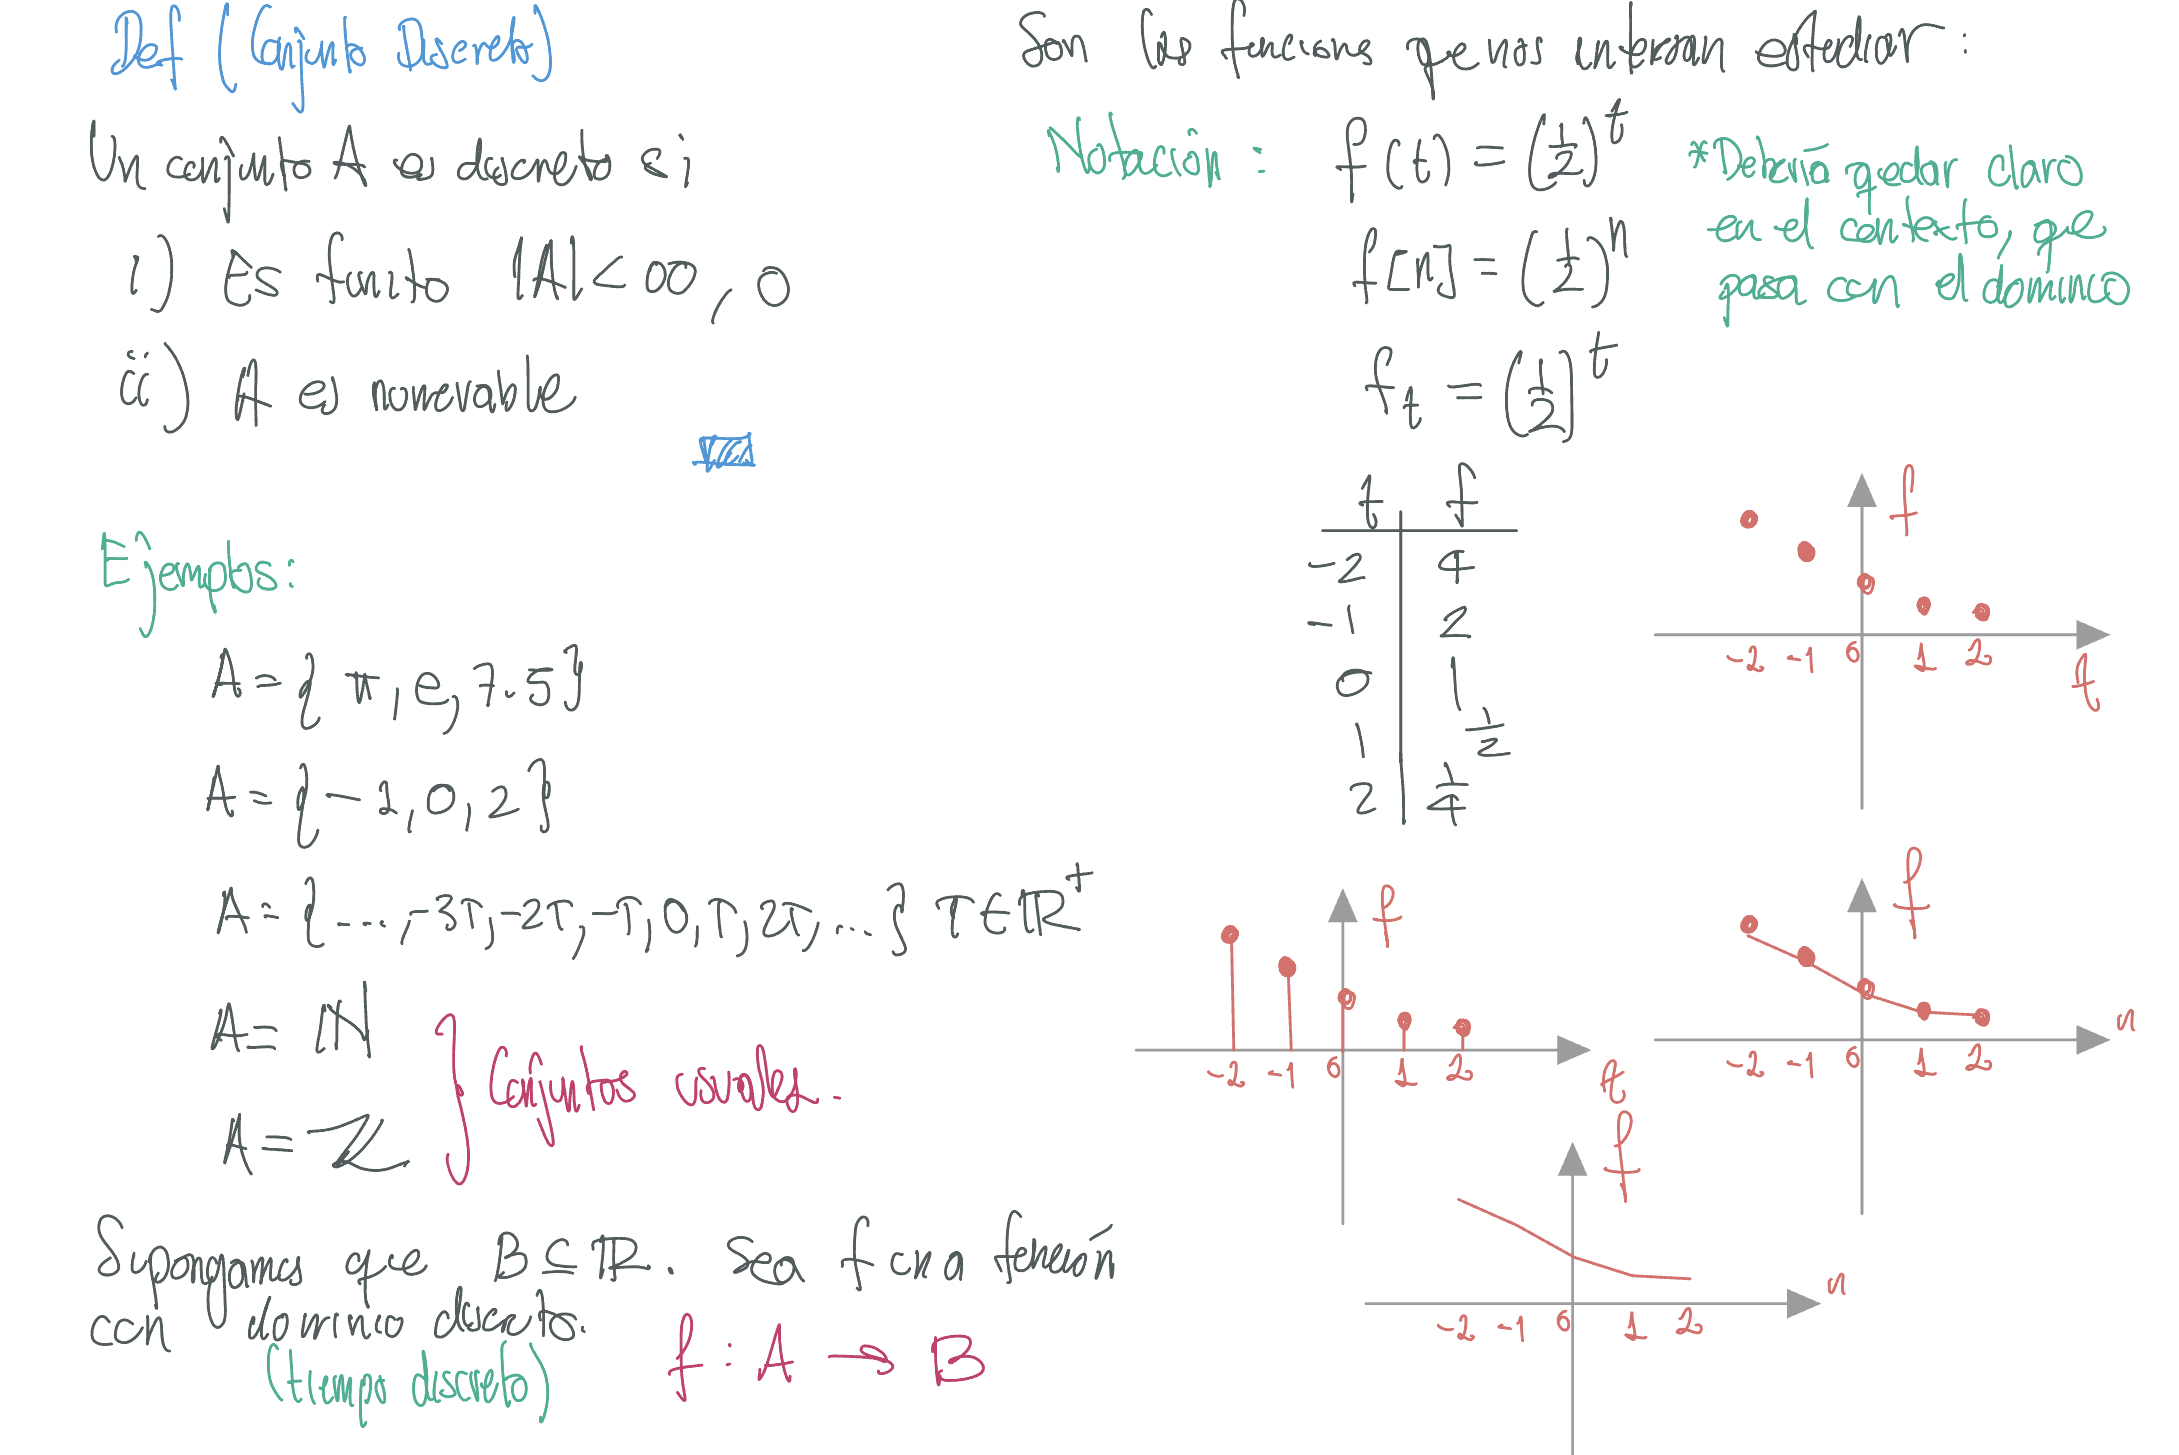 Def (Conjunto Discreto)
Un conjunto A es discreto si
i) Es finito |A| < ∞, o
ii) A es numerable
Ejemplos:
A = { π, e, 7.5 }
A = { -1, 0, 2 }
A = { ..., -3T, -2T, -T, 0, T, 2T, ... } T ∈ ℝ⁺
A = ℕ
A = ℤ
} Conjuntos usuales.
Supongamos que B ⊆ ℝ. Sea f una función
con dominio discreto.
(tiempo discreto)
f : A → B
Son las funciones que nos interesan estudiar :
Notación : f(t) = (1/2)^t
f[n] = (1/2)^n
f_t = (1/2)^t
*Debería quedar claro
en el contexto, que
pasa con el dominio
t f
-2 4
-1 2
0 1
1 1/2
2 1/4
f
-2 -1 0 1 2
t
f
-2 -1 0 1 2
t
f
n
-2 -1 0 1 2
f
n
-2 -1 0 1 2